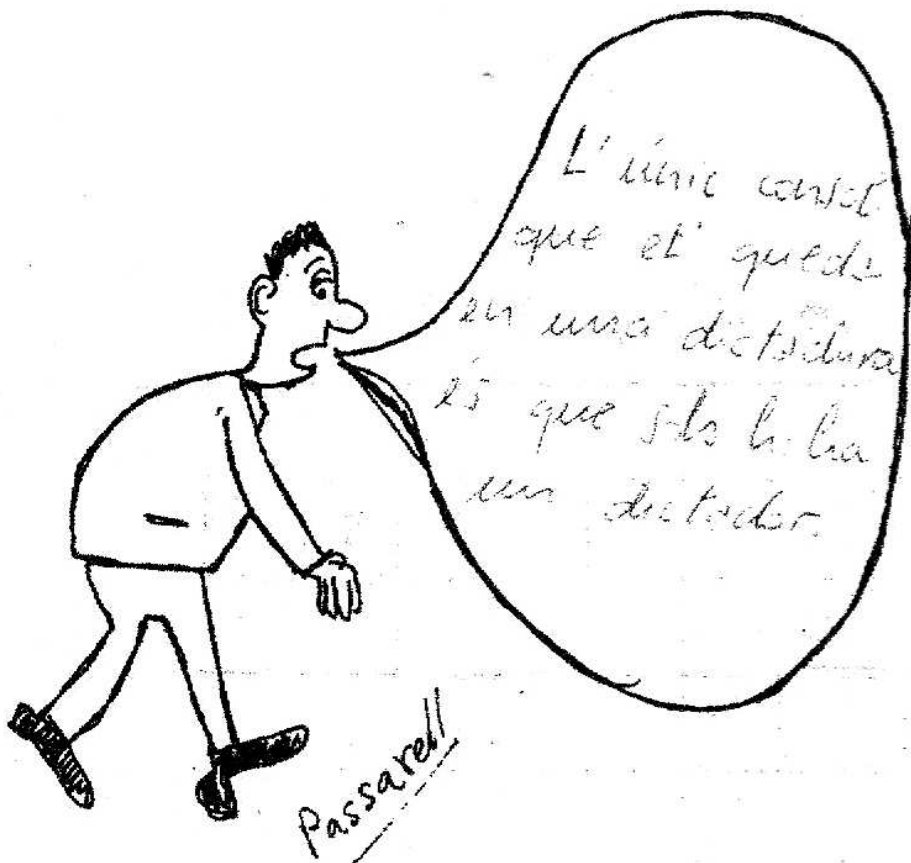 L'únic consol
que et queda
en una dictadura
és que sols hi ha
un dictador.
Passarell